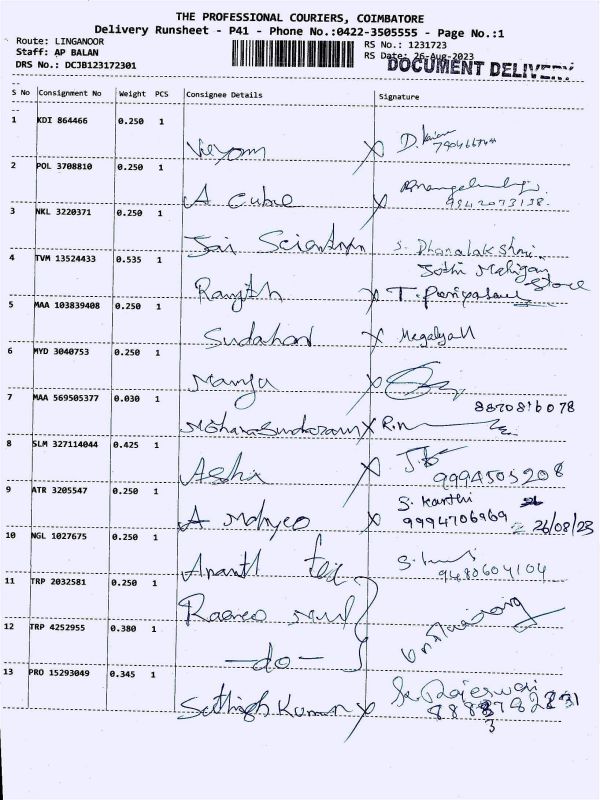 THE PROFESSIONAL COURIERS, COIMBATORE
Delivery Runsheet - P41 - Phone No.:0422-3505555 - Page No.:1
Route: LINGANOOR RS No.: 1231723
Staff: AP BALAN RS Date: 26-Aug-2023
DRS No.: DCJB123172301 DOCUMENT DELIVERY
S No Consignment No Weight PCS Consignee Details Signature
1 KDI 864466 0.250 1
D.
2 POL 3708810 0.250 1
A Cube
9942073138.
3 NKL 3220371 0.250 1
Jai S. Dhanalakshmi.
4 TVM 13524433 0.535 1 Jothi Maligai Store
Ranjith T.
5 MAA 103839408 0.250 1
6 MYD 3040753 0.250 1
Manju
7 MAA 569505377 0.030 1 8870816078
Mohanasundaram R.M
8 SLM 327114044 0.425 1
Asha 9994505208
9 ATR 3205547 0.250 1 S. Karthi
A 9994706969 26/08/23
10 NGL 1027675 0.250 1
Ananth 9480604104
11 TRP 2032581 0.250 1
12 TRP 4252955 0.380 1
—do—
13 PRO 15293049 0.345 1
Sathish Kumar